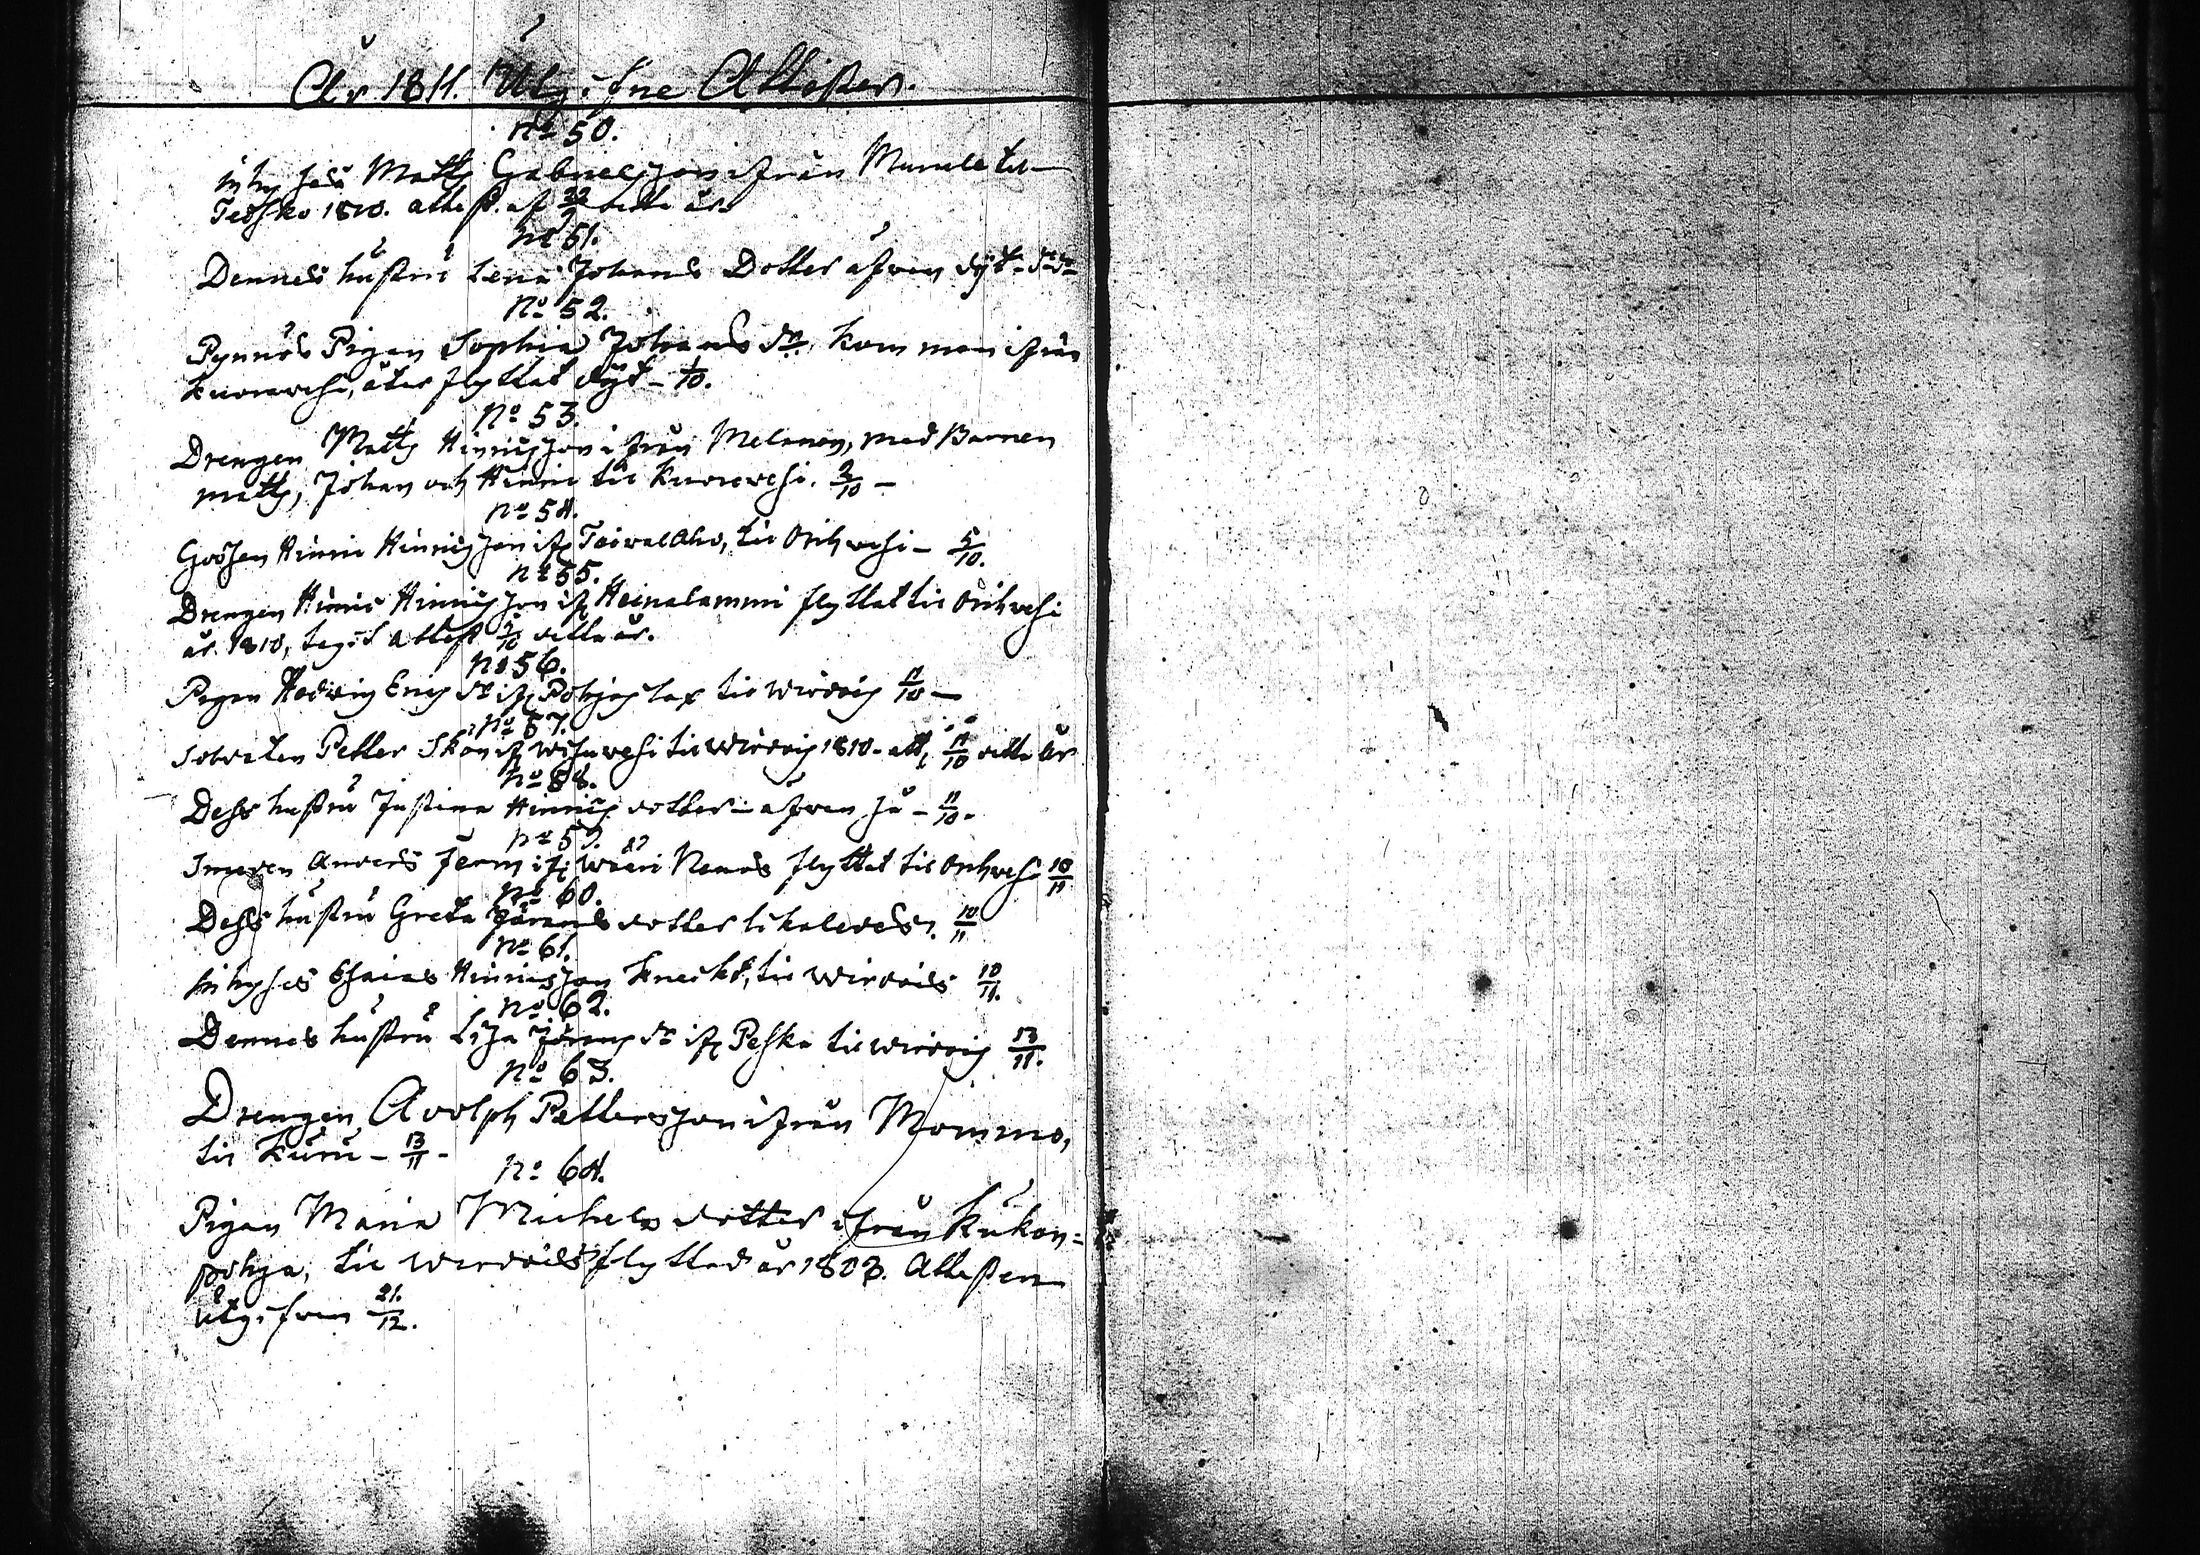 År 1811. Utgifne Attester.
No 50.
Inhyses Matts Gabrielsson ifrån Murole til
Teisko 1810. attest. af 22/9 detta år.
No 51.
Dennes hustru Lena Johans Dotter äfven dijt - do do
No 52.
Pynnös Pigan Sophia Johans dr. kommen ifrån
Kuorewesi, åter flyttat dijt - 1/10.
No 53.
Drengen Matts Hinricsson ifrån Melanen, med Barnen
Matts, Johan och Hinric til Kuorewesi. 2/10 -
No 54.
Gossen Hinric Hinricsson ifr. Taiwalaho, til Orihwesi - 5/10.
No 55.
Drengen Hinric Hinricsson ifr. Heinalammi flyttat til Orihwesi
år 1810, tagit attest 5/10 detta år.
No 56.
Pigan Hedwig Erics dr ifr. Pohjaslax til Wirdois 11/10 -
No 57.
Soldaten Petter Skön ifr. Wisuwesi til Wirdois 1810 - att. 11/10 detta år
No 58.
Dess hustru Justina Hinrics dotter - äfven så - 11/10.
No 59.
Smeden Anders Ferm ifr. Wääri Nemos flyttat til Orihwesi 10/11
No 60.
Dess hustru Greta Jörans dotter likaledes. 10/11
No 61.
Inhyses Esaias Hinricsson Kneckt, til Wirdois 10/11.
No 62.
Dennes hustru Lisa Jörans dr ifr. Peska til Wirdois 13/11.
No 63.
Drengen Adolph Pettersson ifrån Mommo,
til Kuru - 13/11 -
No 64.
Pigan Maria Michels dotter ifrån Kukon=
pohja, til Wirdois flyttad år 1803. Attesten
utgifven 21/12.